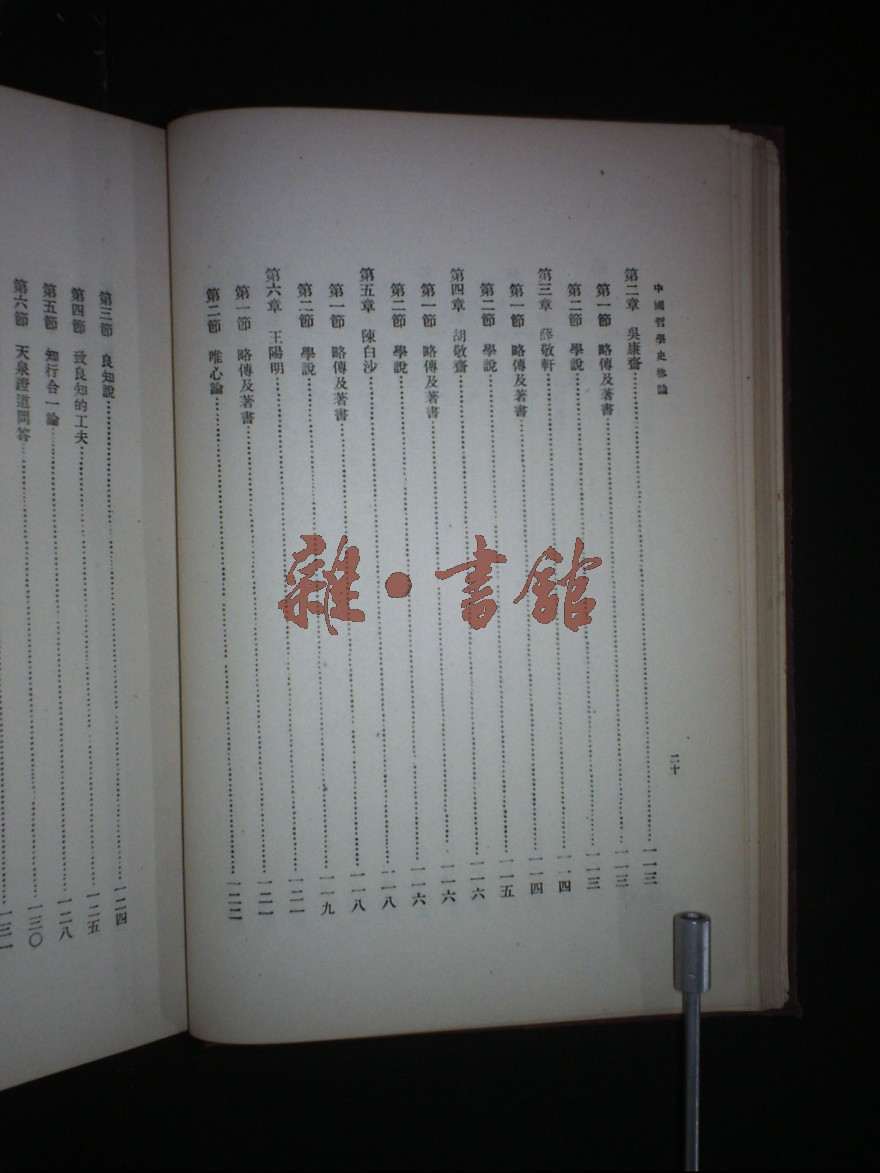 中國哲學史概論 二十
第二章 吳康齋……一一三
第一節 略傳及著書……一一三
第二節 學說……一一三
第三章 薛敬軒……一一四
第一節 略傳及著書……一一四
第二節 學說……一一五
第四章 胡敬齋……一一六
第一節 略傳及著書……一一六
第二節 學說……一一六
第五章 陳白沙……一一八
第一節 略傳及著書……一一八
第二節 學說……一一九
第六章 王陽明……一二一
第一節 略傳及著書……一二一
第二節 唯心論……一二二
第三節 良知說……一二四
第四節 致良知的工夫……一二五
第五節 知行合一論……一二八
第六節 天泉證道問答……一三〇
一三一
雜·書館